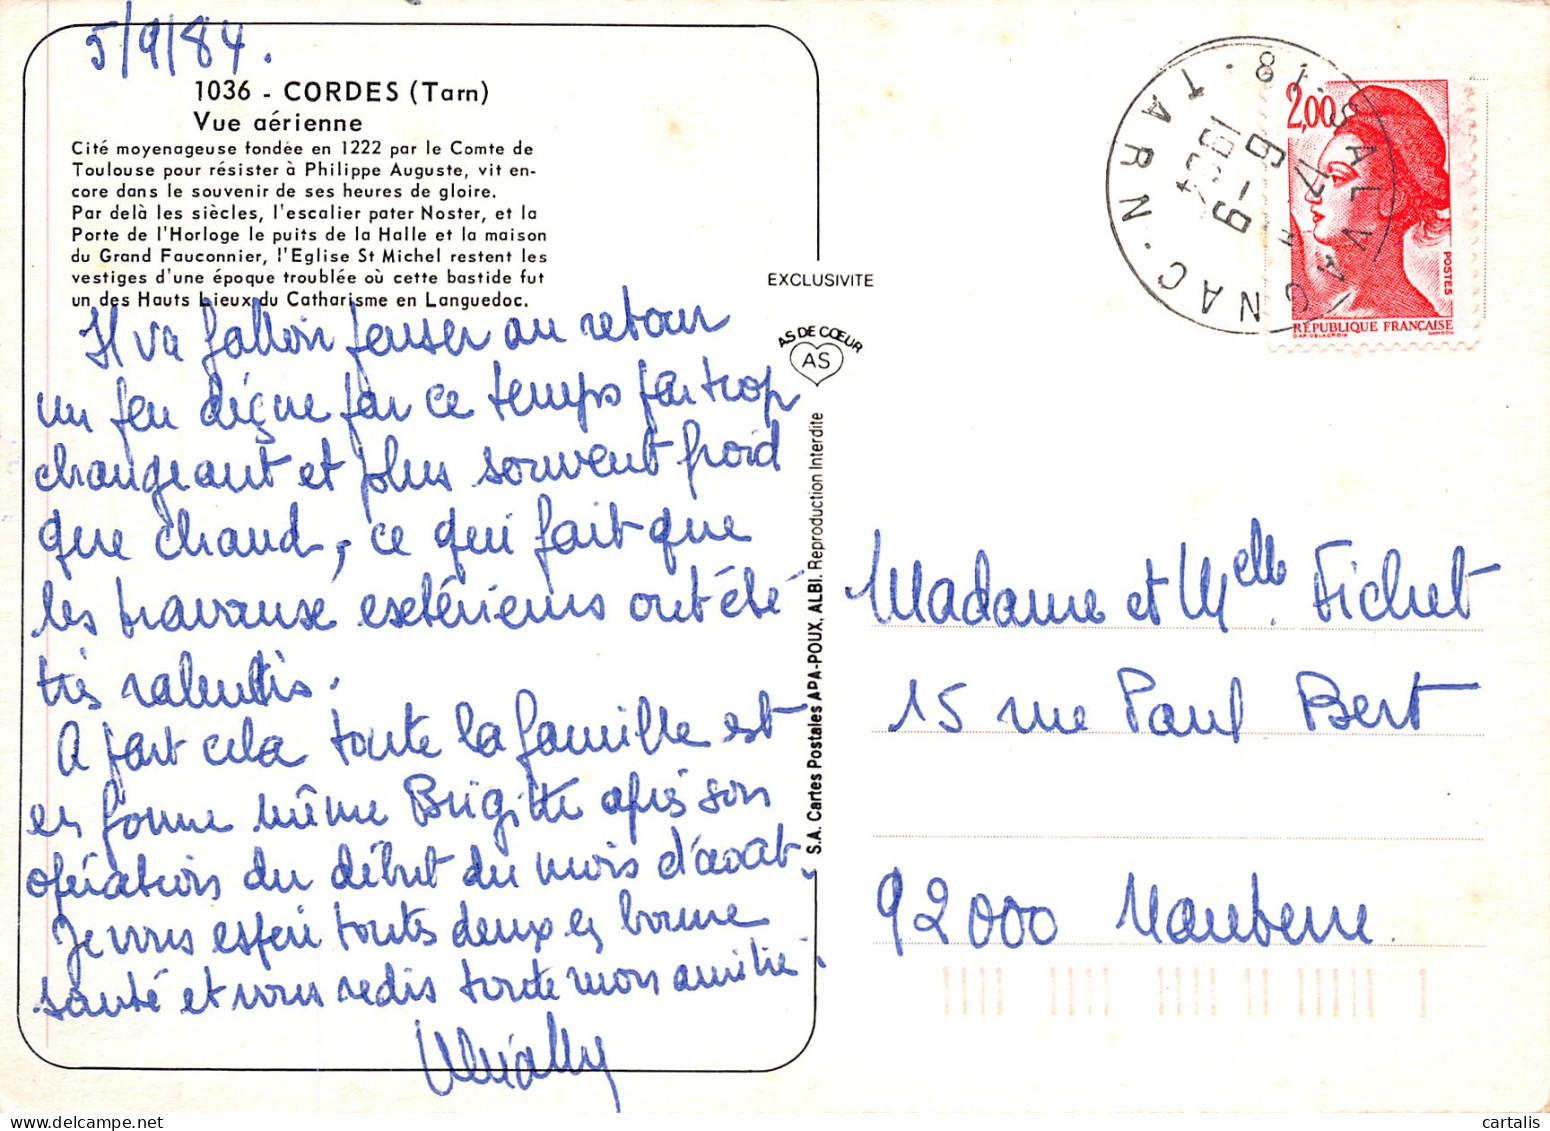 5/9/84.
1036 - CORDES (Tarn)
Vue aérienne
Cité moyenageuse fondée en 1222 par le Comte de
Toulouse pour résister à Philippe Auguste, vit en-
core dans le souvenir de ses heures de gloire.
Par delà les siècles, l'escalier pater Noster, et la
Porte de l'Horloge le puits de la Halle et la maison
du Grand Fauconnier, l'Eglise St Michel restent les
vestiges d'une époque troublée où cette bastide fut
un des Hauts Lieux du Catharisme en Languedoc.
Il va falloir penser au retour
un peu par ce temps par trop
changeant et plus souvent froid
que chaud, ce qui fait que
les travaux extérieurs ont été
très ralentis.
A part cela toute la famille est
en forme même Brigitte après son
opération du début du mois d'août.
Je vous espère toutes deux en bonne
santé et vous redis toute mon amitié.
EXCLUSIVITE
AS DE CŒUR
AS
S.A. Cartes Postales APA-POUX, ALBI. Reproduction Interdite
81.SALVAGNAC.TARN.
17H
6-9
1984
2,00
POSTES
RÉPUBLIQUE FRANÇAISE
D'AP. DELACROIX GANDON
Madame et Melle Fichet
15 rue Paul Bert
92000 Nanterre
cartalis